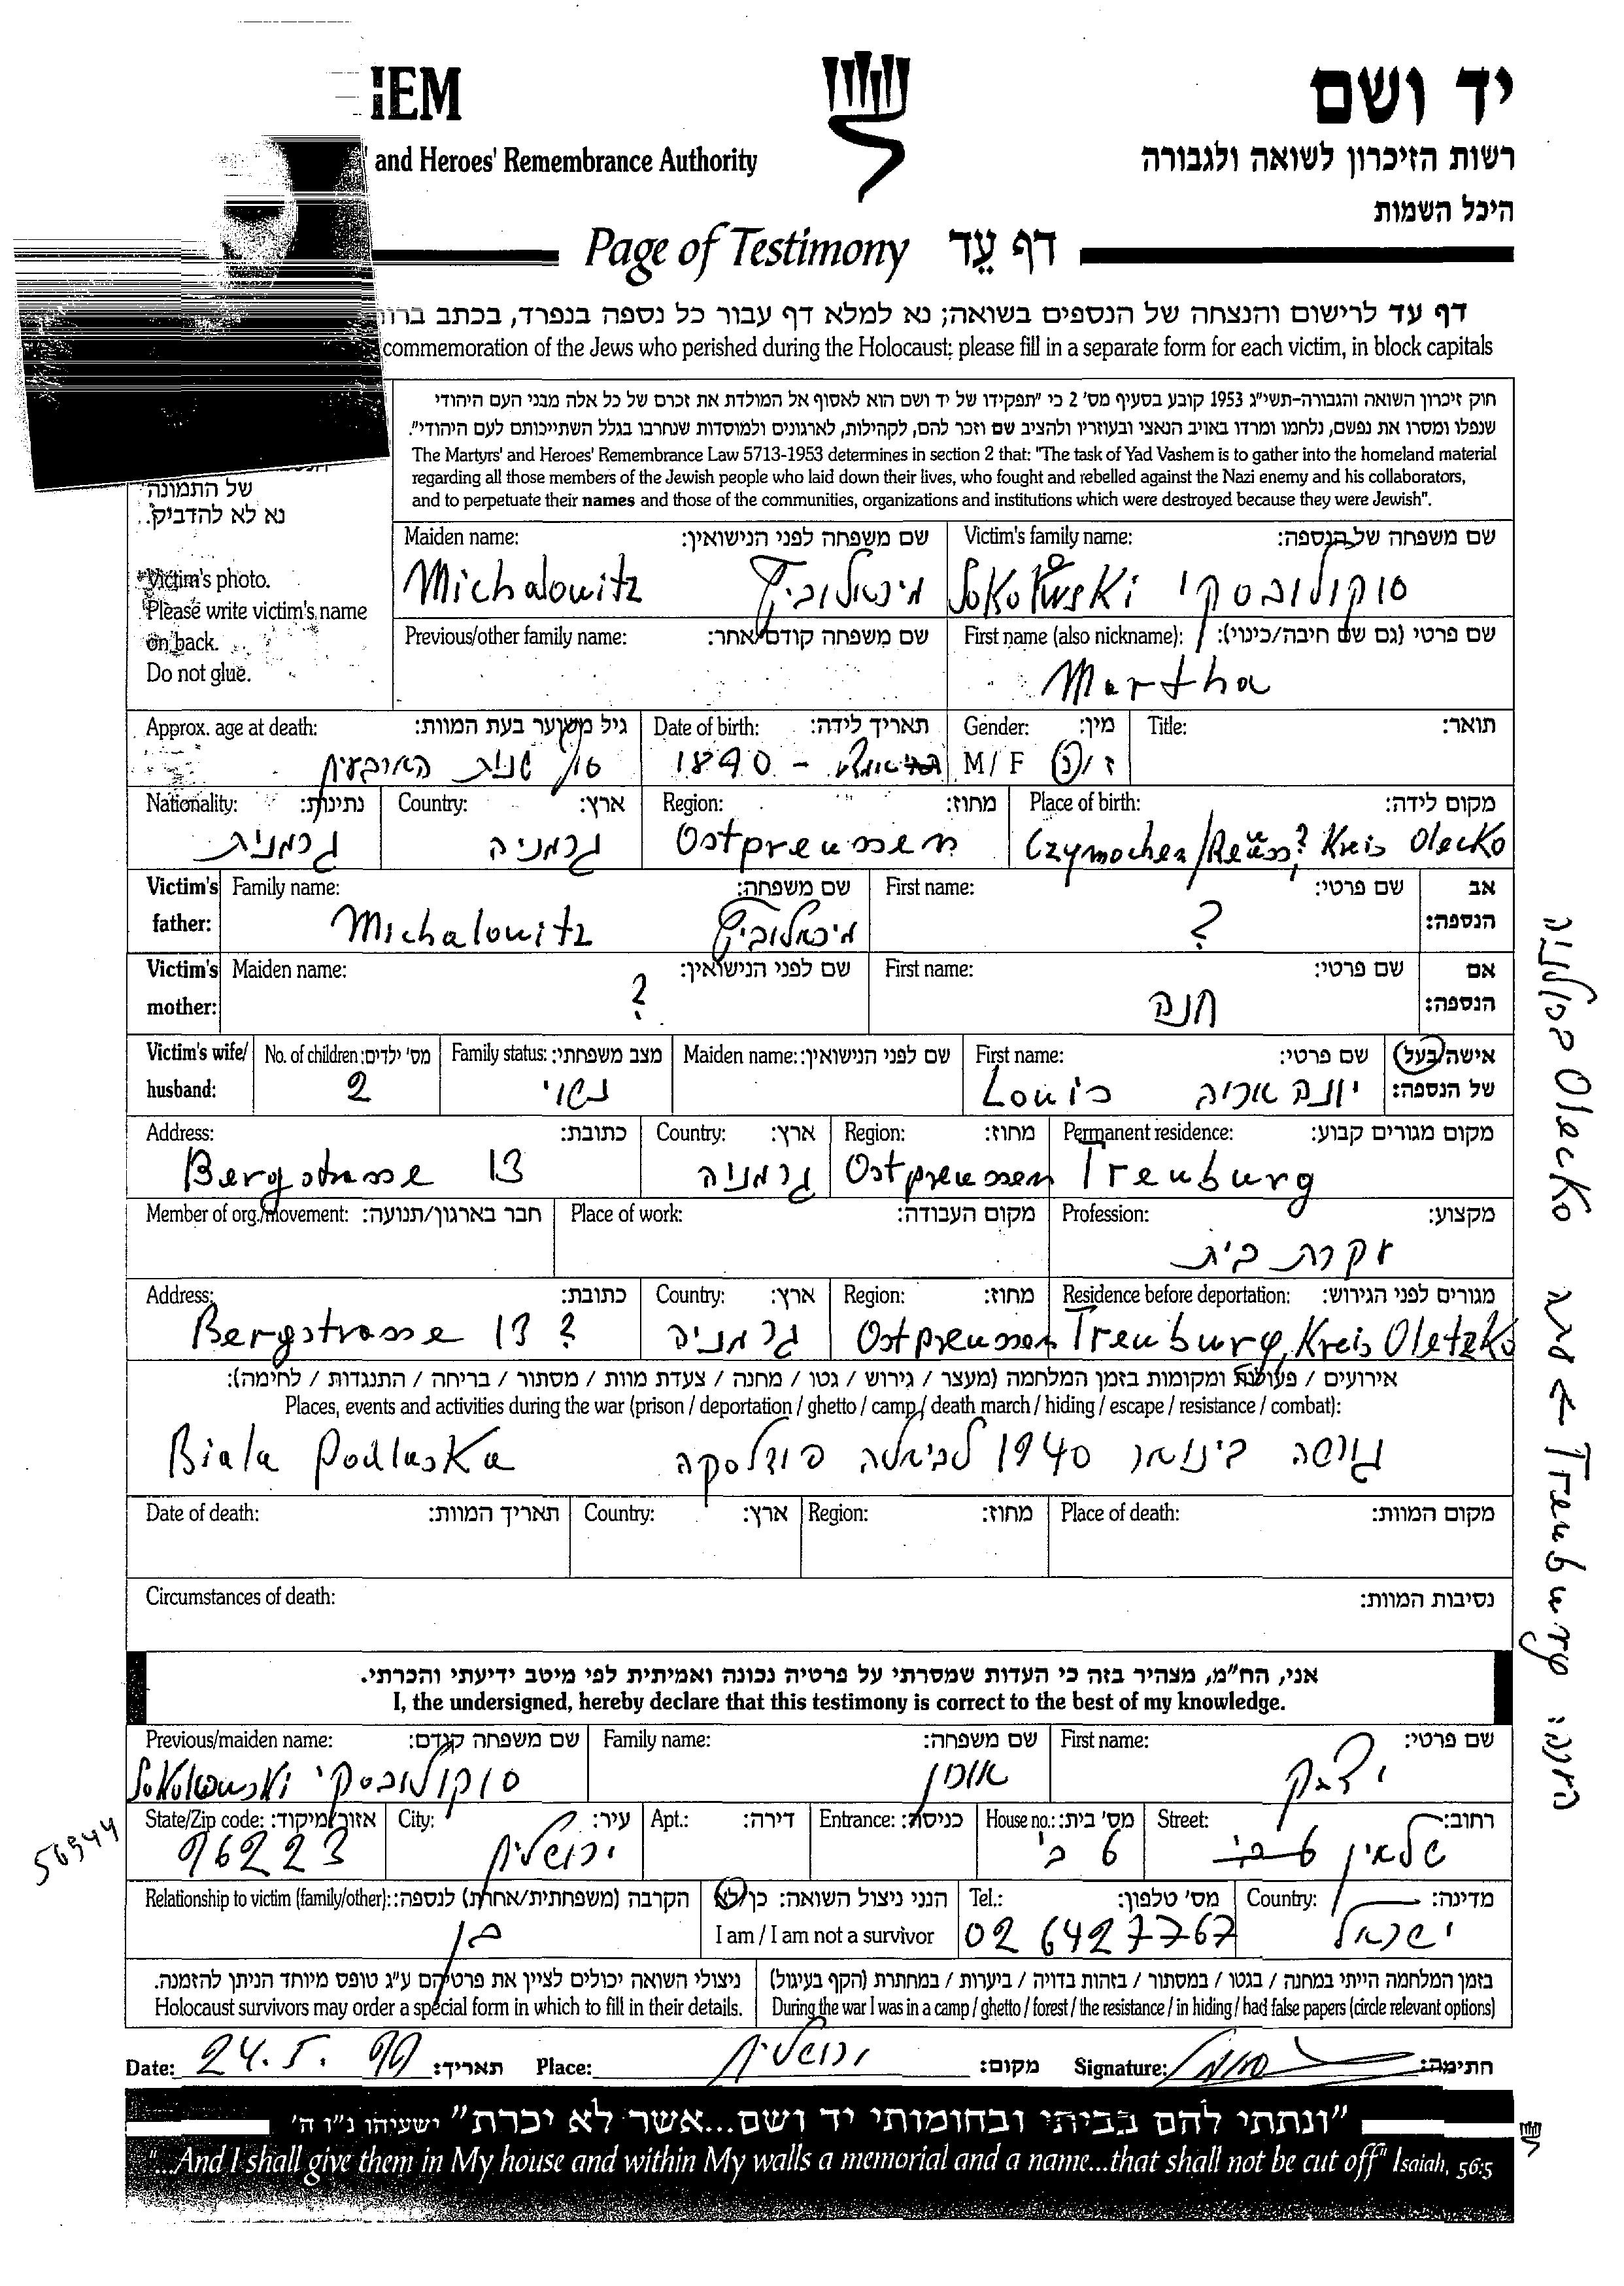 יד ושם
HEM
רשות הזיכרון לשואה ולגבורה
and Heroes' Remembrance Authority
היכל השמות
Page of Testimony דף עֵד
דף עד לרישום והנצחה של הנספים בשואה; נא למלא דף עבור כל נספה בנפרד, בכתב
commemoration of the Jews who perished during the Holocaust; please fill in a separate form for each victim, in block capitals
חוק זיכרון השואה והגבורה-תשי"ג 1953 קובע בסעיף מס' 2 כי "תפקידו של יד ושם הוא לאסוף אל המולדת את זכרם של כל אלה מבני העם היהודי
שנפלו ומסרו את נפשם, נלחמו ומרדו באויב הנאצי ובעוזריו ולהציב שם וזכר להם, לקהילות, לארגונים ולמוסדות שנחרבו בגלל השתייכותם לעם היהודי".
The Martyrs' and Heroes' Remembrance Law 5713-1953 determines in section 2 that: "The task of Yad Vashem is to gather into the homeland material
regarding all those members of the Jewish people who laid down their lives, who fought and rebelled against the Nazi enemy and his collaborators,
and to perpetuate their names and those of the communities, organizations and institutions which were destroyed because they were Jewish".
של התמונה
נא לא להדביק.
Victim's photo.
Please write victim's name
on back.
Do not glue.
Maiden name: שם משפחה לפני הנישואין: Victim's family name: שם משפחה של הנספה:
Michalowitz מיכאלוביץ Sokolowski סוקולובסקי
Previous/other family name: שם משפחה קודם/אחר: First name (also nickname): שם פרטי (גם שם חיבה/כינוי):
Martha
Approx. age at death: גיל משוער בעת המוות: Date of birth: תאריך לידה: Gender: מין: Title: תואר:
סוף שנות הארבעים 1890 - M / F ז / נ
Nationality: נתינות: Country: ארץ: Region: מחוז: Place of birth: מקום לידה:
גרמנית גרמניה Ostpreussen Czymochen/Reuss? Kreis Olecko
Victim's father: Family name: שם משפחה: First name: שם פרטי: אב הנספה:
Michalowitz מיכאלוביץ ?
Victim's mother: Maiden name: שם לפני הנישואין: First name: שם פרטי: אם הנספה:
? חנה
Victim's wife/ husband: No. of children: מס' ילדים: Family status: מצב משפחתי: Maiden name: שם לפני הנישואין: First name: שם פרטי: אישה/בעל של הנספה:
2 נשוי Louis יונה אריה
Address: כתובת: Country: ארץ: Region: מחוז: Permanent residence: מקום מגורים קבוע:
Bergstrasse 13 גרמניה Ostpreussen Treuburg
Member of org./movement: חבר בארגון/תנועה: Place of work: מקום העבודה: Profession: מקצוע:
עקרת בית
Address: כתובת: Country: ארץ: Region: מחוז: Residence before deportation: מגורים לפני הגירוש:
Bergstrasse 13 ? גרמניה Ostpreussen Treuburg, Kreis Oletzko
אירועים / פעולות ומקומות בזמן המלחמה (מעצר / גירוש / גטו / מחנה / צעדת מוות / מסתור / בריחה / התנגדות / לחימה):
Places, events and activities during the war (prison / deportation / ghetto / camp / death march / hiding / escape / resistance / combat):
Biala Podlaska גורשה בינואר 1940 לביאלה פודלסקה
Date of death: תאריך המוות: Country: ארץ: Region: מחוז: Place of death: מקום המוות:
Circumstances of death: נסיבות המוות:
אני, הח"מ, מצהיר בזה כי העדות שמסרתי על פרטיה נכונה ואמיתית לפי מיטב ידיעתי והכרתי.
I, the undersigned, hereby declare that this testimony is correct to the best of my knowledge.
Previous/maiden name: שם משפחה קודם: Family name: שם משפחה: First name: שם פרטי:
Sokolowski סוקולובסקי
State/Zip code: אזור/מיקוד: City: עיר: Apt.: דירה: Entrance: כניסה: House no.: מס' בית: Street: רחוב:
56944
96223 ירושלים 6 ב'
Relationship to victim (family/other): הקרבה (משפחתית/אחרת) לנספה: הנני ניצול השואה: כן/לא Tel.: מס' טלפון: Country: מדינה:
בן I am / I am not a survivor 02 6427767 ישראל
ניצולי השואה יכולים לציין את פרטיהם ע"ג טופס מיוחד הניתן להזמנה. בזמן המלחמה הייתי במחנה / בגטו / במסתור / בזהות בדויה / ביערות / במחתרת (הקף בעיגול)
Holocaust survivors may order a special form in which to fill in their details. During the war I was in a camp / ghetto / forest / the resistance / in hiding / had false papers (circle relevant options)
Date: 24.5.99 תאריך: Place: ירושלים מקום: Signature: חתימה:
"ונתתי להם בביתי ובחומותי יד ושם...אשר לא יכרת" ישעיהו נ"ו ה'
"...And I shall give them in My house and within My walls a memorial and a name...that shall not be cut off" Isaiah, 56:5
הערה: Treuburg ← Olecko בפולניה